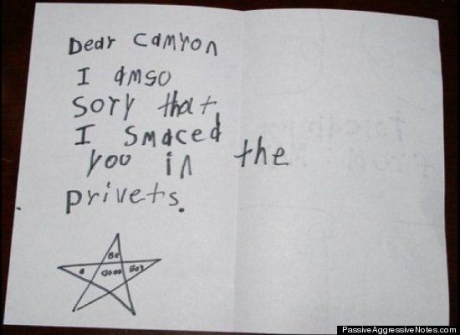 Dear Camyon
I amso
Sory that
I Smaced
you in the
privets.
Be
a Good Boy
PassiveAggressiveNotes.com